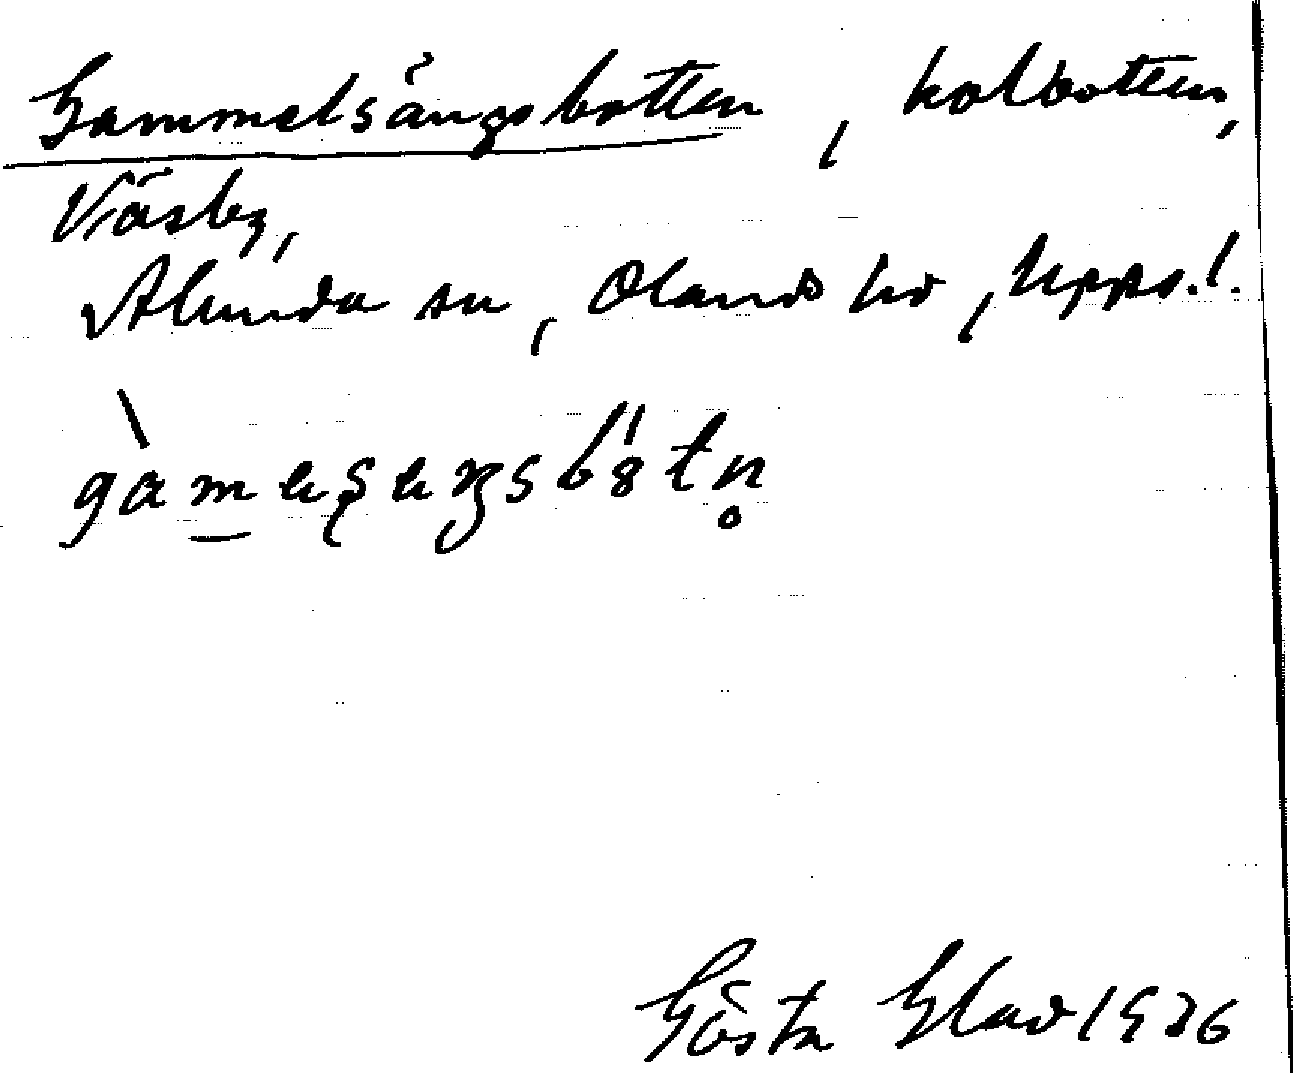 Gammelsängsbotten, kolbotten,
Väsby,
Alunda sn, Olands hd, Upps.l.
Gösta Glad 1926